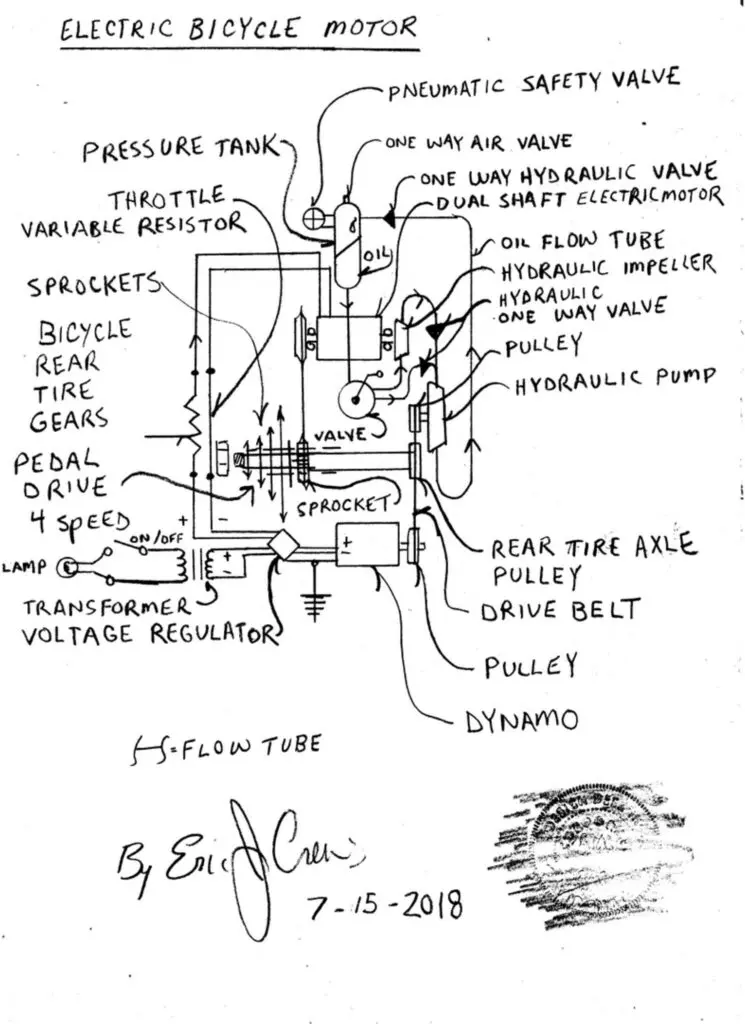 ELECTRIC BICYCLE MOTOR
PNEUMATIC SAFETY VALVE
PRESSURE TANK
ONE WAY AIR VALVE
ONE WAY HYDRAULIC VALVE
THROTTLE
VARIABLE RESISTOR
DUAL SHAFT ELECTRIC MOTOR
OIL
OIL FLOW TUBE
SPROCKETS
HYDRAULIC IMPELLER
HYDRAULIC
ONE WAY VALVE
BICYCLE
REAR
TIRE
GEARS
PULLEY
HYDRAULIC PUMP
VALVE
PEDAL
DRIVE
4 SPEED
SPROCKET
+ -
ON/OFF
LAMP
+
-
+
-
REAR TIRE AXLE
PULLEY
TRANSFORMER
VOLTAGE REGULATOR
DRIVE BELT
PULLEY
DYNAMO
=FLOW TUBE
By Eric J
7-15-2018